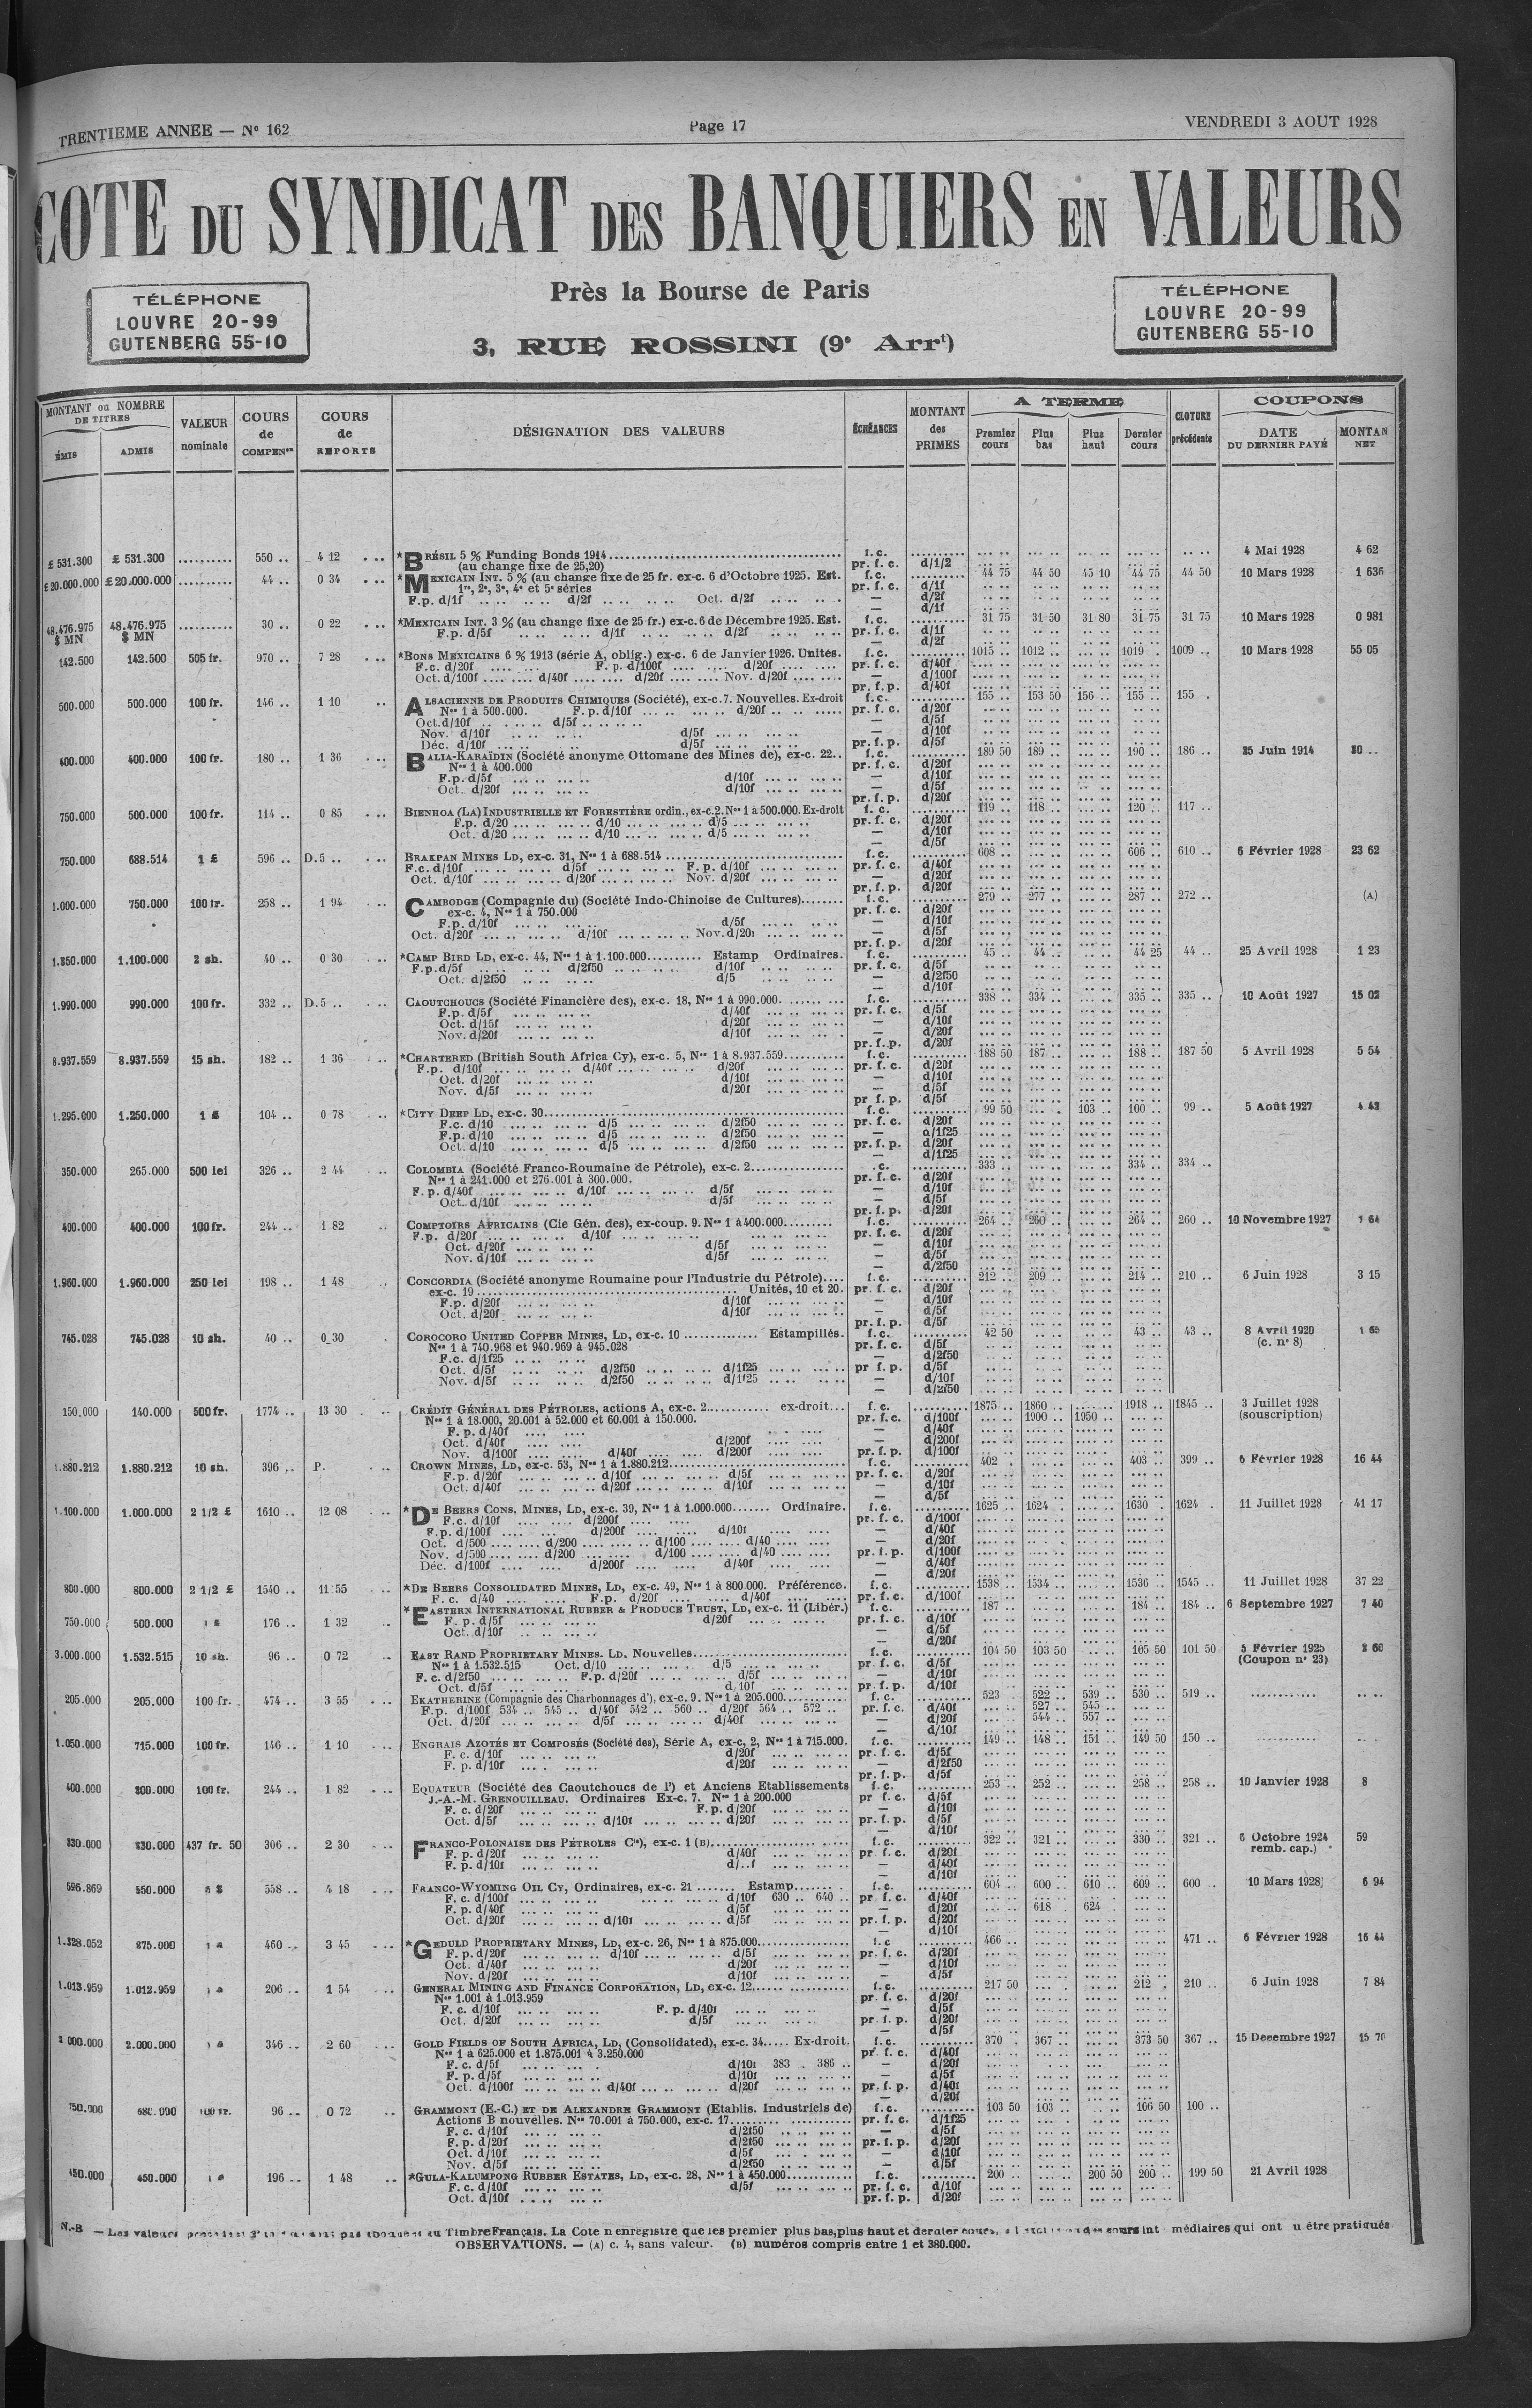 TRENTIEME ANNEE — N° 162 Page 17 VENDREDI 3 AOUT 1928
COTE DU SYNDICAT DES BANQUIERS EN VALEURS
Près la Bourse de Paris
3, RUE ROSSINI (9e Arrt)
TÉLÉPHONE
LOUVRE 20-99
GUTENBERG 55-10
TÉLÉPHONE
LOUVRE 20-99
GUTENBERG 55-10
MONTANT ou NOMBRE DE TITRES ÉMIS ADMIS
VALEUR nominale
COURS de COMPENon
COURS de REPORTS
DÉSIGNATION DES VALEURS
ÉCHÉANCES
MONTANT des PRIMES
A TERME
Premier cours Plus bas Plus haut Dernier cours
CLOTURE précédente
COUPONS
DATE DU DERNIER PAYÉ MONTAN NET
£ 531.300 £ 531.300 .......... 550 .. 4 12 *BRÉSIL 5 % Funding Bonds 1914 f. c. 4 Mai 1928 4 62
(au change fixe de 25,20) pr. f. c. d/1/2
£ 20.000.000 £ 20.000.000 .......... 44 .. 0 34 *MEXICAIN INT. 5 % (au change fixe de 25 fr. ex-c. 6 d'Octobre 1925. Est. f. c. 44 75 44 50 45 10 44 75 44 50 10 Mars 1928 1 636
1re, 2e, 3e, 4e et 5e séries pr. f. c. d/1f
F.p. d/1f d/2f Oct. d/2f — d/2f
— d/1f
48.476.975 $ MN 48.476.975 $ MN .......... 30 .. 0 22 *MEXICAIN INT. 3 % (au change fixe de 25 fr.) ex-c. 6 de Décembre 1925. Est. f. c. 31 75 31 50 31 80 31 75 31 75 10 Mars 1928 0 981
F.p. d/5f d/1f d/2f pr. f. c. d/1f
— d/2f
142.500 142.500 505 fr. 970 .. 7 28 *BONS MEXICAINS 6 % 1913 (série A, oblig.) ex-c. 6 de Janvier 1926. Unités. f. c. 1015 .. 1012 .. 1019 .. 1009 .. 10 Mars 1928 55 05
F.c. d/20f F. p. d/100f d/20f pr. f. c. d/40f
Oct. d/100f d/40f d/20f Nov. d/20f — d/100f
pr. f. p. d/40f
500.000 500.000 100 fr. 146 .. 1 10 ALSACIENNE DE PRODUITS CHIMIQUES (Société), ex-c. 7. Nouvelles. Ex-droit f. c. 155 .. 153 50 156 .. 155 .. 155 .
Nos 1 à 500.000. F.p. d/10f d/20f pr. f. c. d/20f
Oct. d/10f d/5f — d/5f
Nov. d/10f d/5f — d/10f
Déc. d/10f d/5f pr. f. p. d/5f
400.000 400.000 100 fr. 180 .. 1 36 BALIA-KARAÏDIN (Société anonyme Ottomane des Mines de), ex-c. 22.. f. c. 189 50 189 .. 190 .. 186 .. 25 Juin 1914
Nos 1 à 400.000 pr. f. c. d/20f
F.p. d/5f d/10f — d/10f
Oct. d/20f d/10f — d/5f
pr. f. p. d/20f
750.000 500.000 100 fr. 114 .. 0 85 BIENHOA (LA) INDUSTRIELLE ET FORESTIÈRE ordin., ex-c. 2. Nos 1 à 500.000. Ex-droit f. c. 119 .. 118 .. 120 .. 117 ..
F.p. d/20 d/10 d/5 pr. f. c. d/20f
Oct. d/20 d/10 d/5 — d/10f
— d/5f
750.000 688.514 1 £ 596 .. D.5 .. BRAKPAN MINES LD, ex-c. 31, Nos 1 à 688.514 f. c. 608 .. 606 .. 610 .. 6 Février 1928 23 62
F.c. d/10f d/5f F. p. d/10f pr. f. c. d/40f
Oct. d/10f d/20f Nov. d/20f — d/20f
pr. f. p. d/20f
1.000.000 750.000 100 fr. 258 .. 1 94 CAMBODGE (Compagnie du) (Société Indo-Chinoise de Cultures) f. c. 279 .. 277 .. 287 .. 272 .. (A)
ex-c. 4, Nos 1 à 750.000 pr. f. c. d/20f
F.p. d/10f d/5f — d/10f
Oct. d/20f d/10f Nov. d/20f — d/5f
pr. f. p. d/20f
1.350.000 1.100.000 2 sh. 40 .. 0 30 *CAMP BIRD LD, ex-c. 44, Nos 1 à 1.100.000 Estamp Ordinaires. f. c. 45 .. 44 .. 44 25 44 .. 25 Avril 1928 1 23
F.p. d/5f d/2f50 d/10f pr. f. c. d/5f
Oct. d/2f50 d/5 — d/2f50
— d/10f
1.990.000 990.000 100 fr. 332 .. D.5 .. CAOUTCHOUCS (Société Financière des), ex-c. 18, Nos 1 à 990.000. f. c. 338 .. 334 .. 335 .. 335 .. 10 Août 1927 15 02
F.p. d/5f d/40f pr. f. c. d/5f
Oct. d/15f d/20f — d/10f
Nov. d/20f d/10f — d/20f
pr. f. p. d/20f
8.937.559 8.937.559 15 sh. 182 .. 1 36 *CHARTERED (British South Africa Cy), ex-c. 5, Nos 1 à 8.937.559 f. c. 188 50 187 .. 188 .. 187 50 5 Avril 1928 5 54
F.p. d/10f d/40f d/20f pr. f. c. d/20f
Oct. d/20f d/10f — d/10f
Nov. d/5f d/20f — d/5f
pr f. p. d/5f
1.295.000 1.250.000 104 .. 0 78 *CITY DEEP LD, ex-c. 30 f. c. 99 50 103 .. 100 .. 99 .. 5 Août 1927
F.c. d/10 d/5 d/2f50 pr. f. c. d/20f
F.p. d/10 d/5 d/2f50 — d/1f25
Oct. d/10 d/5 d/2f50 pr. f. p. d/20f
— d/1f25
350.000 265.000 500 lei 326 .. 2 44 COLOMBIA (Société Franco-Roumaine de Pétrole), ex-c. 2 c. 333 .. 334 .. 334 ..
Nos 1 à 241.000 et 276.001 à 300.000. pr. f. c. d/20f
F. p. d/40f d/10f d/5f — d/10f
Oct. d/10f d/5f — d/5f
pr. f. p. d/20f
400.000 400.000 100 fr. 244 .. 1 82 COMPTOIRS AFRICAINS (Cie Gén. des), ex-coup. 9. Nos 1 à 400.000 f. c. 264 .. 260 .. 264 .. 260 .. 10 Novembre 1927
F.p. d/20f d/10f pr. f. c. d/20f
Oct. d/20f d/5f — d/10f
Nov. d/10f d/5f — d/5f
— d/2f50
1.960.000 1.960.000 250 lei 198 .. 1 48 CONCORDIA (Société anonyme Roumaine pour l'Industrie du Pétrole).... f. c. 212 .. 209 .. 214 .. 210 .. 6 Juin 1928 3 15
ex-c. 19 Unités, 10 et 20. pr. f. c. d/20f
F.p. d/20f d/10f — d/10f
Oct. d/20f d/10f — d/5f
pr. f. p. d/5f
745.028 745.028 10 sh. 40 .. 0 30 COROCORO UNITED COPPER MINES, LD, ex-c. 10 Estampillés. f. c. 42 50 43 .. 43 .. 8 Avril 1920
Nos 1 à 740.968 et 940.969 à 945.028 pr. f. c. d/5f (c. n° 8)
F.c. d/1f25 — d/2f50
Oct. d/5f d/2f50 d/1f25 pr f. p. d/5f
Nov. d/5f d/2f50 d/1f25 — d/10f
— d/2f50
150.000 140.000 500 fr. 1774 .. 13 30 CRÉDIT GÉNÉRAL DES PÉTROLES, actions A, ex-c. 2 ex-droit... f. c. 1875 .. 1860 .. 1918 .. 1845 .. 3 Juillet 1928
Nos 1 à 18.000, 20.001 à 52.000 et 60.001 à 150.000. pr. f. c. d/100f 1900 .. 1950 .. (souscription)
F. p. d/40f — d/40f
Oct. d/40f d/200f — d/200f
Nov. d/100f d/40f d/200f pr. f. p. d/100f
1.880.212 1.880.212 10 sh. 396 .. P. CROWN MINES, LD, ex-c. 53, Nos 1 à 1.880.212 f. c. 402 . 403 .. 399 .. 6 Février 1928 16 44
F.p. d/20f d/10f d/5f pr. f. c. d/20f
Oct. d/40f d/20f d/10f — d/10f
— d/5f
1.100.000 1.000.000 2 1/2 £ 1610 .. 12 08 *DE BEERS CONS. MINES, LD, ex-c. 39, Nos 1 à 1.000.000 Ordinaire. f. c. 1625 .. 1624 .. 1630 .. 1624 . 11 Juillet 1928 41 17
F.c. d/10f d/200f pr. f. c. d/100f
F.p. d/100f d/200f d/10f — d/40f
Oct. d/500 d/200 d/100 d/40 — d/20f
Nov. d/500 d/200 d/100 d/40 pr. f. p. d/100f
Déc. d/100f d/200f d/40f — d/40f
— d/20f
800.000 800.000 2 1/2 £ 1540 .. 11 55 *DE BEERS CONSOLIDATED MINES, LD, ex-c. 49, Nos 1 à 800.000. Préférence. f. c. 1538 .. 1534 .. 1536 .. 1545 .. 11 Juillet 1928 37 22
F. c. d/40 F.p. d/20f d/40f pr. f. c. d/100f
750.000 500.000 176 .. 1 32 *EASTERN INTERNATIONAL RUBBER & PRODUCE TRUST, LD, ex-c. 11 (Libér.) f. c. 187 .. 184 .. 184 .. 6 Septembre 1927 7 40
F. p. d/5f d/20f pr. f. c. d/10f
Oct. d/10f — d/5f
— d/20f
3.000.000 1.532.515 10 sh. 96 .. 0 72 EAST RAND PROPRIETARY MINES. LD. Nouvelles f. c. 104 50 103 50 105 50 101 50 5 Février 1925
Nos 1 à 1.532.515 Oct. d/10 d/5 pr. f. c. d/5f (Coupon n° 23)
F. c. d/2f50 F.p. d/20f d/5f — d/10f
Oct. d/5f d/10f pr. f. p. d/10f
205.000 205.000 100 fr. 474 .. 3 55 EKATHERINE (Compagnie des Charbonnages d'), ex-c. 9. Nos 1 à 205.000 f. c. 523 . 522 .. 539 .. 530 .. 519 ..
F.p. d/100f 534 .. 545 .. d/40f 542 .. 560 .. d/20f 564 .. 572 .. pr. f. c. d/40f 527 .. 545 ..
Oct. d/20f d/5f d/40f — d/20f 544 .. 557 ..
— d/10f
1.050.000 715.000 100 fr. 146 .. 1 10 ENGRAIS AZOTÉS ET COMPOSÉS (Société des), Série A, ex-c, 2, Nos 1 à 715.000. f. c. 149 .. 148 .. 151 .. 149 50 150 ..
F. c. d/10f d/20f pr. f. c. d/5f
F. p. d/10f d/20f — d/2f50
pr. f. p. d/5f
400.000 200.000 100 fr. 244 .. 1 82 EQUATEUR (Société des Caoutchoucs de l') et Anciens Etablissements f. c. 253 .. 252 .. 258 .. 258 .. 10 Janvier 1928 8
J.-A.-M. GRENOUILLEAU. Ordinaires Ex-c. 7. Nos 1 à 200.000 pr f. c. d/5f
F. c. d/20f F.p. d/20f — d/10f
Oct. d/5f d/10f d/20f pr. f. p. d/5f
— d/10f
330.000 330.000 437 fr. 50 306 .. 2 30 FRANCO-POLONAISE DES PÉTROLES Cie), ex-c. 1 (B) f. c. 322 .. 321 .. 330 .. 321 .. 6 Octobre 1924 59
F. p. d/20f d/40f pr f. c. d/20f remb. cap.)
F. p. d/10f d/..f — d/40f
— d/10f
596.869 550.000 558 .. 4 18 FRANCO-WYOMING OIL CY, Ordinaires, ex-c. 21 Estamp f. c. 604 .. 600 .. 610 .. 609 .. 600 .. 10 Mars 1928 6 94
F. c. d/100f d/10f 630 .. 640 .. pr f. c. d/40f
F. p. d/40f d/5f — d/20f 618 .. 624 ..
Oct. d/20f d/10f d/5f pr. f. p. d/20f
— d/10f
1.328.052 875.000 460 .. 3 45 *GEDULD PROPRIETARY MINES, LD, ex-c. 26, Nos 1 à 875.000 f. c 466 .. 471 .. 6 Février 1928 16 44
F. p. d/20f d/10f d/5f pr. f. c. d/20f
Oct. d/40f d/20f — d/10f
Nov. d/20f d/10f — d/5f
1.013.959 1.012.959 206 .. 1 54 GENERAL MINING AND FINANCE CORPORATION, LD, ex-c. 12 f. c. 217 50 212 .. 210 .. 6 Juin 1928 7 84
Nos 1.001 à 1.013.959 pr. f. c. d/20f
F. c. d/10f F. p. d/10f — d/5f
Oct. d/20f d/5f pr. f. p. d/20f
— d/5f
2.000.000 2.000.000 346 .. 2 60 GOLD FIELDS OF SOUTH AFRICA, LD, (Consolidated), ex-c. 34 Ex-droit. f. c. 370 . 367 .. 373 50 367 .. 15 Decembre 1927 15 70
Nos 1 à 625.000 et 1.875.001 à 3.250.000 pr. f. c. d/40f
F. c. d/5f d/10f 383 . 386 .. — d/20f
F. p. d/5f d/10f — d/5f
Oct. d/100f d/40f d/20f pr. f. p. d/40f
— d/20f
750.000 680.000 100 fr. 96 .. 0 72 GRAMMONT (E.-C.) ET DE ALEXANDRE GRAMMONT (Etablis. Industriels de) f. c. 103 50 103 .. 106 50 100 ..
Actions B nouvelles. Nos 70.001 à 750.000, ex-c. 17 pr. f. c. d/1f25
F. c. d/10f d/2f50 — d/5f
F. p. d/20f d/2f50 pr. f. p. d/20f
Oct. d/10f d/5f — d/10f
Nov. d/5f d/2f50 — d/5f
450.000 450.000 196 .. 1 48 *GULA-KALUMPONG RUBBER ESTATES, LD, ex-c. 28, Nos 1 à 450.000 f. c. 200 .. 200 50 200 .. 199 50 21 Avril 1928
F. c. d/10f d/5f pr. f. c. d/10f
Oct. d/10f pr. f. p. d/20f
N.-B — Les valeurs pas au Timbre Français. La Cote n enregistre que les premier plus bas, plus haut et dernier cours, cours int médiaires qui ont u être pratiqués
OBSERVATIONS. — (A) c. 4, sans valeur. (B) numéros compris entre 1 et 380.000.